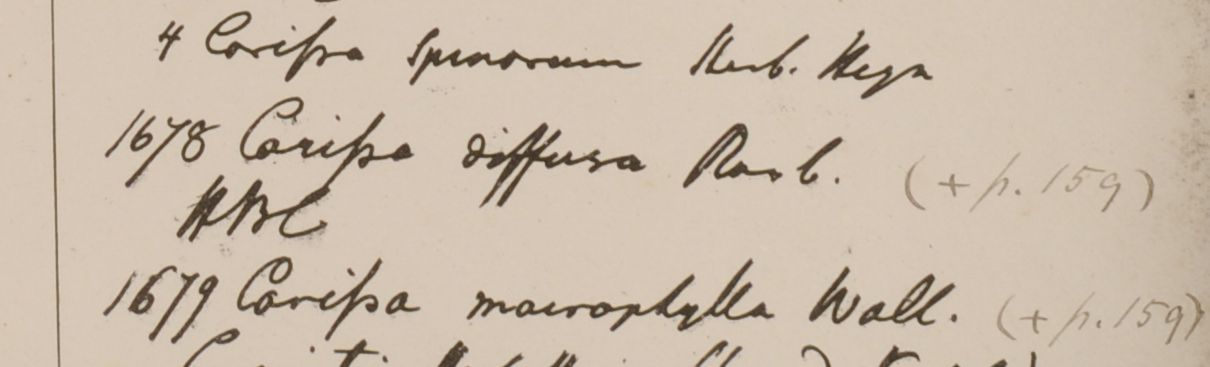 4 Carissa spinarum Herb. Heyn
1678 Carissa diffusa Roxb. (+ p. 159)
HBC
1679 Carissa macrophylla Wall. (+ p. 159)